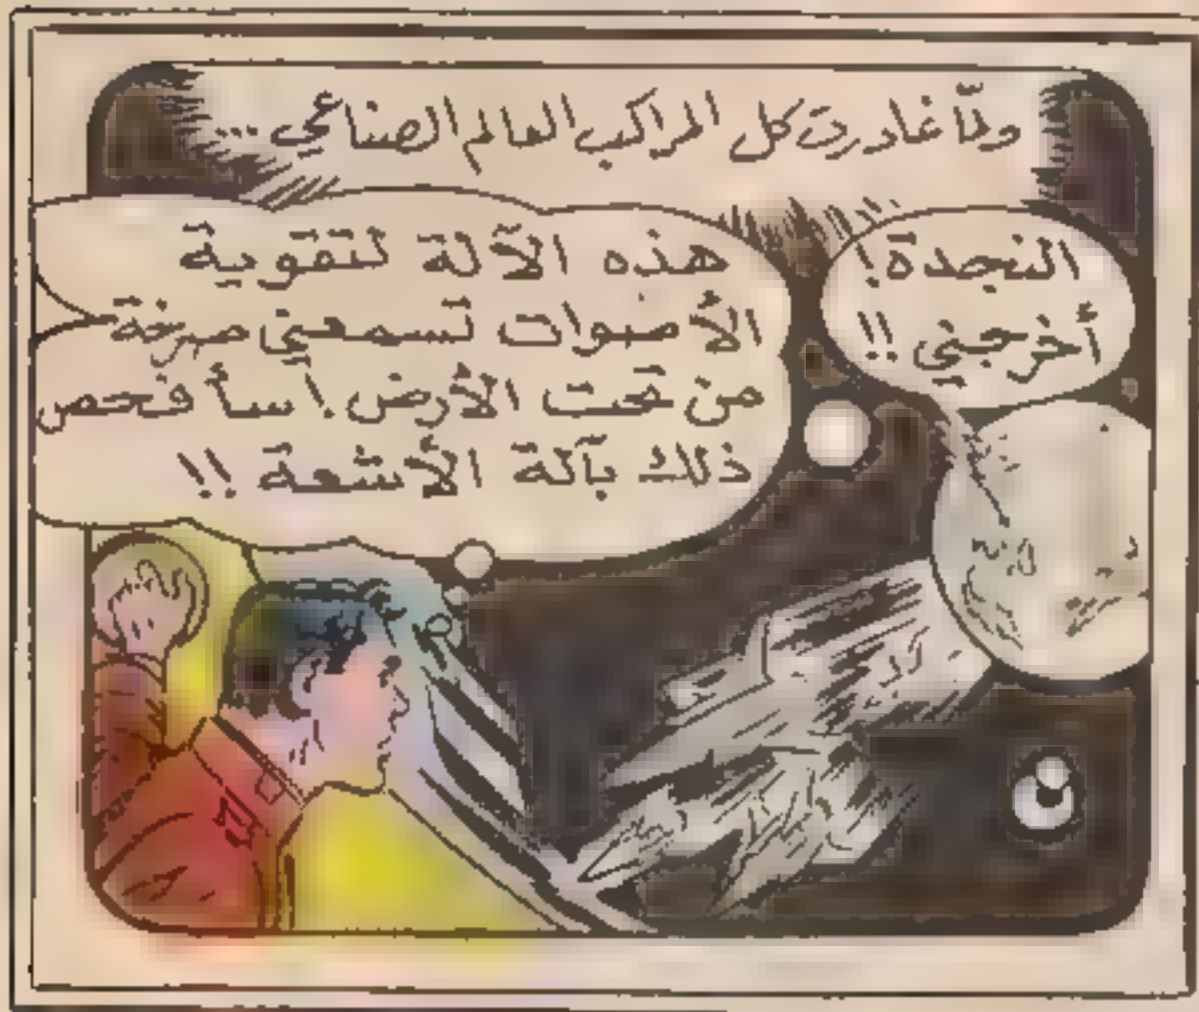 ولمّا غادرت كل المراكب العالم الصناعي ...
النجدة!
أخرجني !!
هذه الآلة لتقوية
الأصوات تسمعني صرخة
من تحت الأرض! سأفحص
ذلك بآلة الأشعة !!